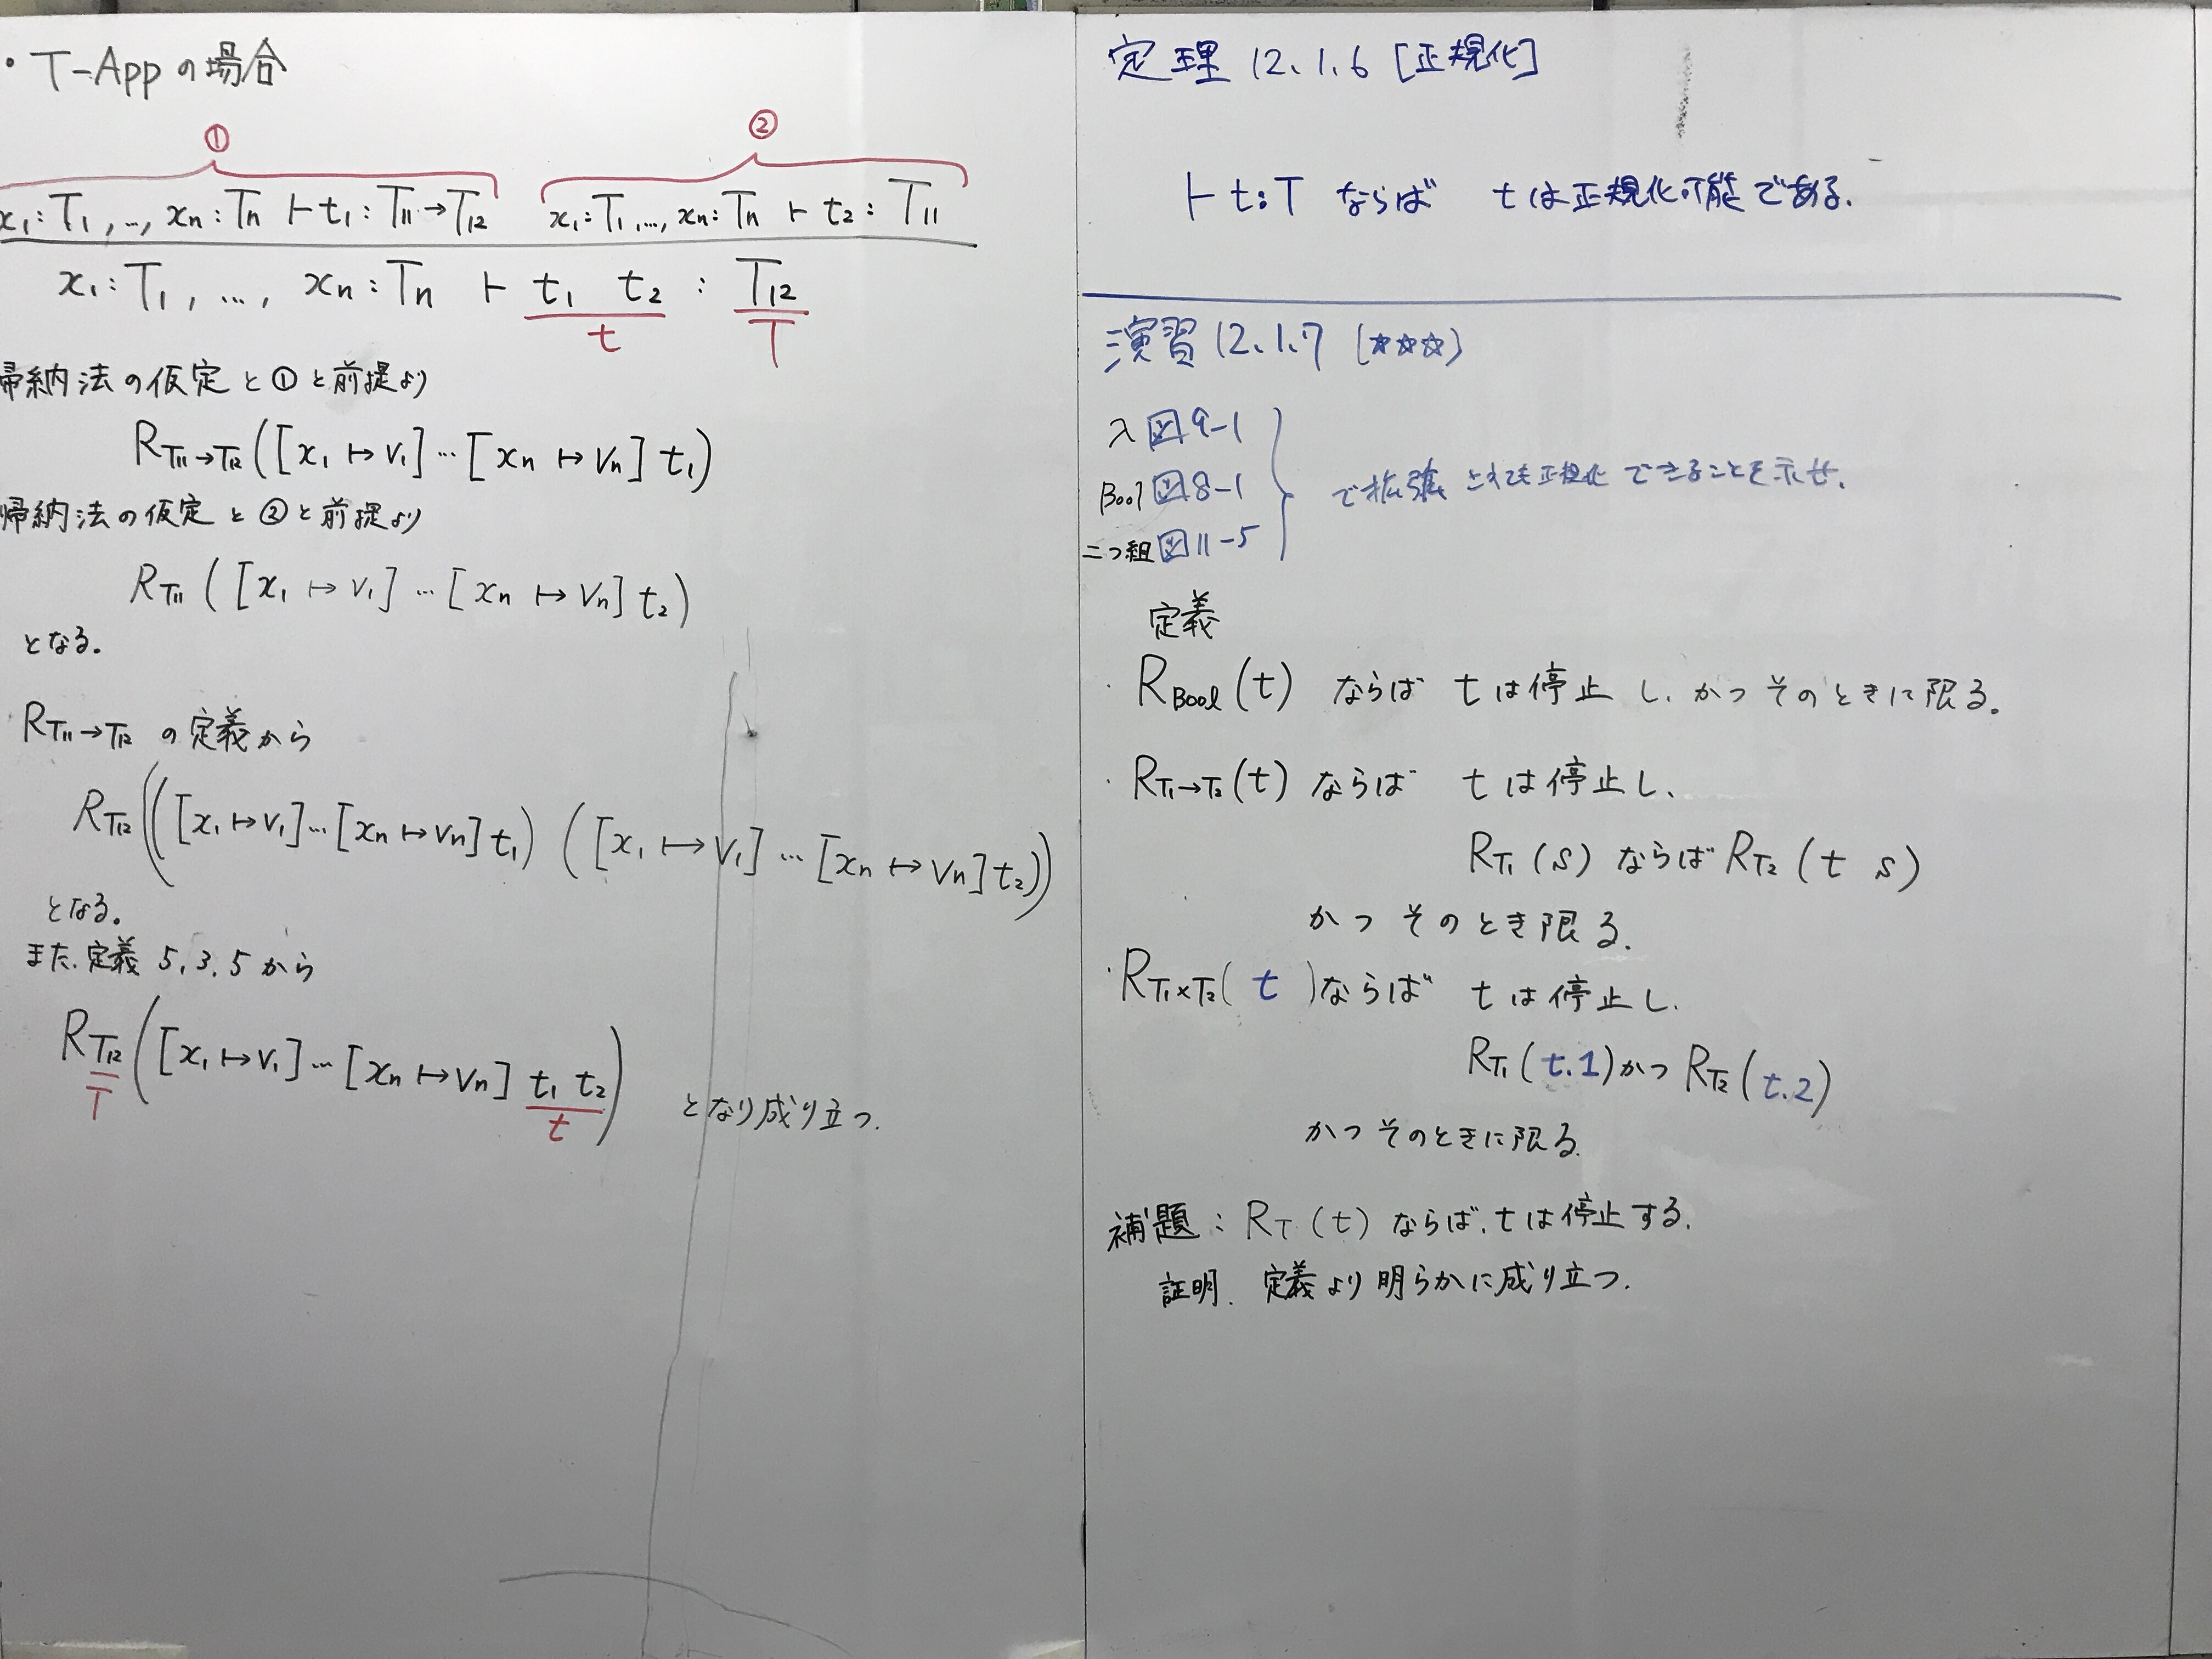 ・T-Appの場合
① ②
x₁:T₁, ..., xn:Tn ⊢ t₁:T₁₁→T₁₂ x₁:T₁, ..., xn:Tn ⊢ t₂:T₁₁
x₁:T₁, ..., xn:Tn ⊢ t₁ t₂ : T₁₂
t T
帰納法の仮定と①と前提より
R_T₁₁→T₁₂([x₁↦v₁]…[xn↦vn]t₁)
帰納法の仮定と②と前提より
R_T₁₁([x₁↦v₁]…[xn↦vn]t₂)
となる。
R_T₁₁→T₁₂の定義から
R_T₁₂(([x₁↦v₁]…[xn↦vn]t₁)([x₁↦v₁]…[xn↦vn]t₂))
となる。
また、定義5.3.5から
R_T₁₂([x₁↦v₁]…[xn↦vn]t₁ t₂) となり成り立つ.
T t
定理 12.1.6 [正規化]
⊢ t:T ならば tは正規化可能である.
演習 12.1.7 (☆☆☆)
λ 図9-1
Bool 図8-1 で拡張されても正規化できることを示せ.
二つ組 図11-5
定義
・R_Bool(t) ならば tは停止し、かつそのときに限る。
・R_T₁→T₂(t) ならば tは停止し、
R_T₁(s) ならば R_T₂(t s)
かつそのとき限る.
・R_T₁×T₂( t )ならば tは停止し.
R_T₁(t.1)かつ R_T₂(t.2)
かつそのときに限る.
補題:R_T(t)ならば、tは停止する.
証明. 定義より明らかに成り立つ.